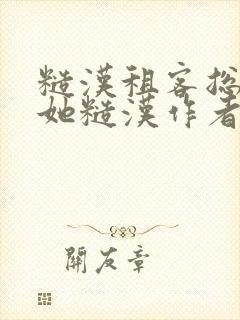 糙漢租客总
她糙漢作者
開友章